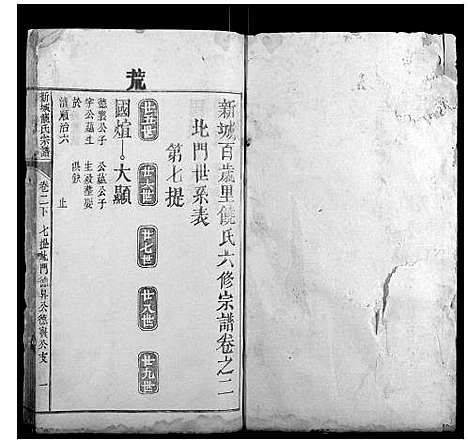 新城百歲里饒氏六修宗譜卷之二
北門世系表
第七提
荒
廿五世
廿六世
廿七世
廿八世
廿九世
國煊
大顯
德襄公子
字公蘊生
清雍治六
於
公蘊公子
生歿塟娶
俱缺
止
新城饒氏宗譜
卷二下
七提北門德昇公德襄公支
一